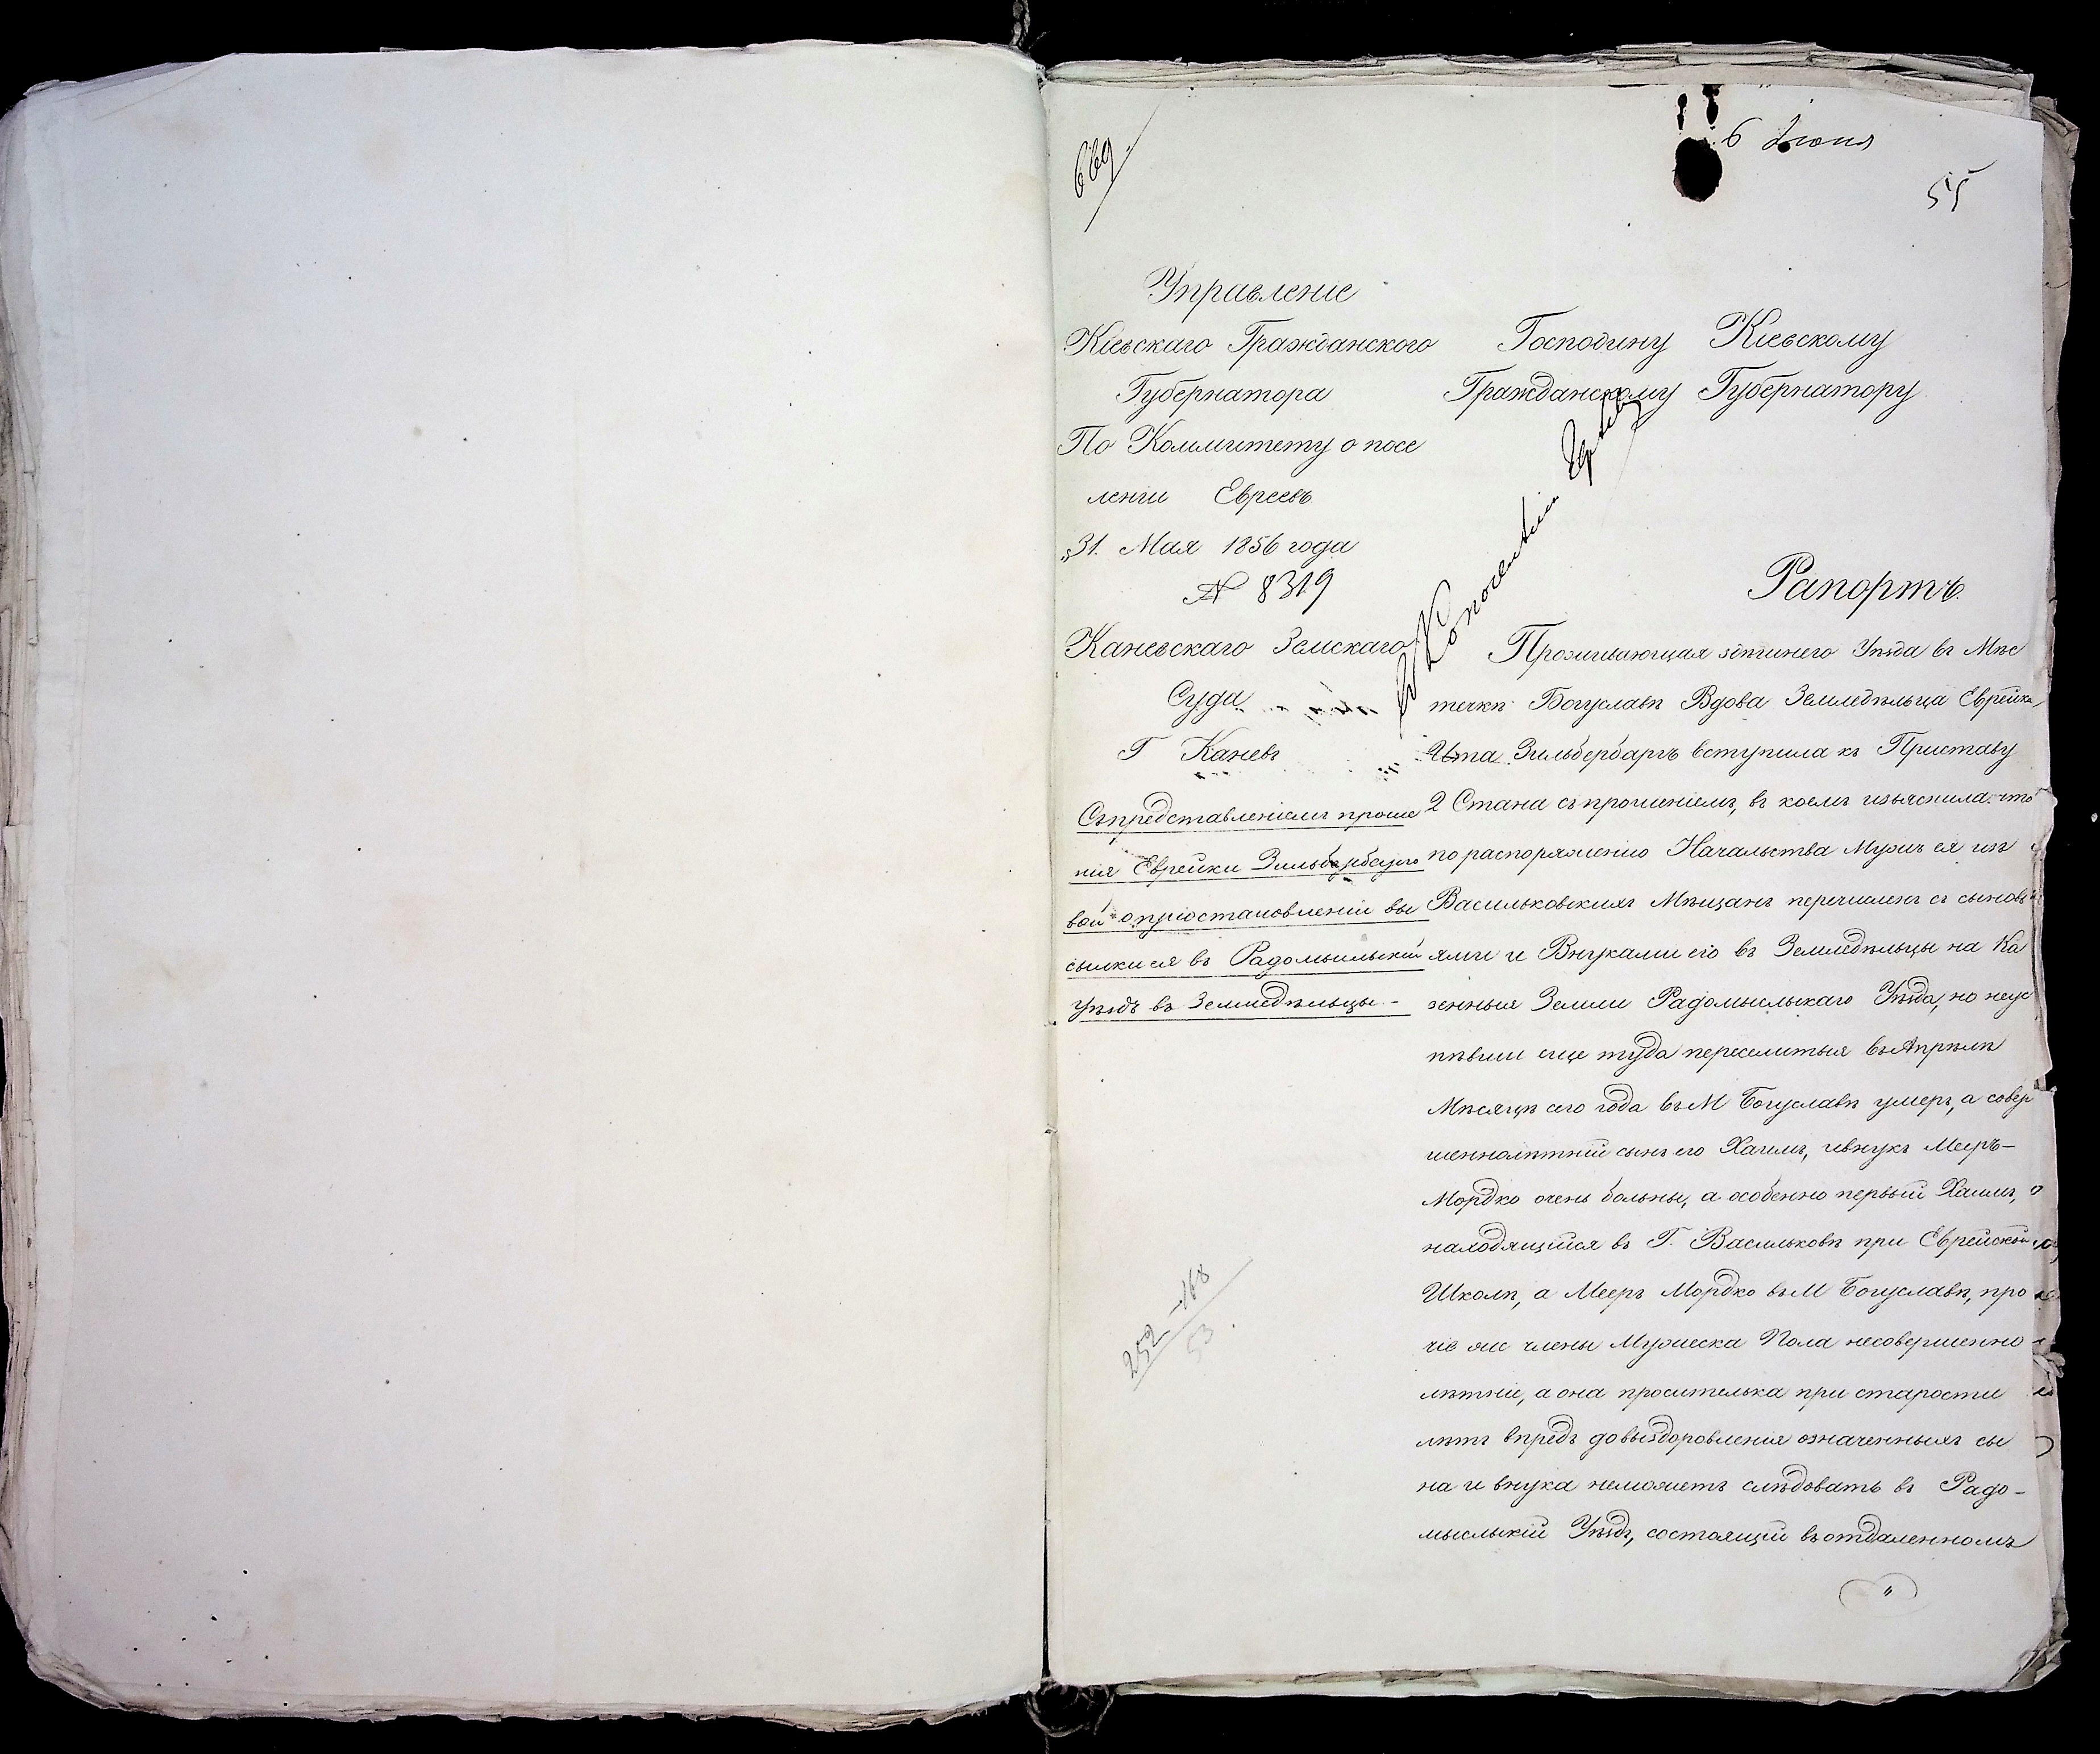 669.
6 Июня
55
Управленіе
Кіевскаго Гражданского
Губернатора
По Коммитету о посе
леніи Евреевъ
31. Мая 1856 года
№ 8319
Каневскаго Земскаго
Суда
Г Каневъ
Съ представленіемъ проше
нія Еврейки Зильбербарго
вой о пріостановленіи вы
сылки ея въ Радомысльскій
Уѣздъ въ Земледѣльцы -
252 - 168
53
Господину Кіевскому
Гражданскому Губернатору
Рапортъ.
Проживающая здѣшнего Уѣзда въ Мѣс
течкѣ Богуславѣ Вдова Земледѣльца Еврейка
Ита Зильбербаргъ вступила къ Приставу
2 Стана съ прошеніемъ, въ коемъ изъяснила что
по распоряженію Начальства Мужъ ея изъ
Васильковскихъ Мѣщанъ перечисленъ съ сыновь
ями и Внуками его въ Земледѣльцы на Ка
зенныя Земли Радомысльскаго Уѣзда, но неус
пѣвши еще туда переселиться въ Апрѣлѣ
Мѣсяцѣ сего года въ М Богуславѣ умеръ, а совер
шеннолѣтній сынъ его Хаимъ, и внукъ Мееръ-
Мордко очень больны, а особенно первый Хаимъ,
находящийся въ Г. Васильковѣ при Еврейской
Школѣ, а Мееръ Мордко въ М Богуславѣ, про
чіе же члены Мужеска Пола несовершенно
лѣтніе, а она просителька при старости
лѣтъ впредь до выздоровленія означенныхъ сы
на и внука неможетъ слѣдовать въ Радо-
мысльскій Уѣздъ, состоящій въ отдаленномъ